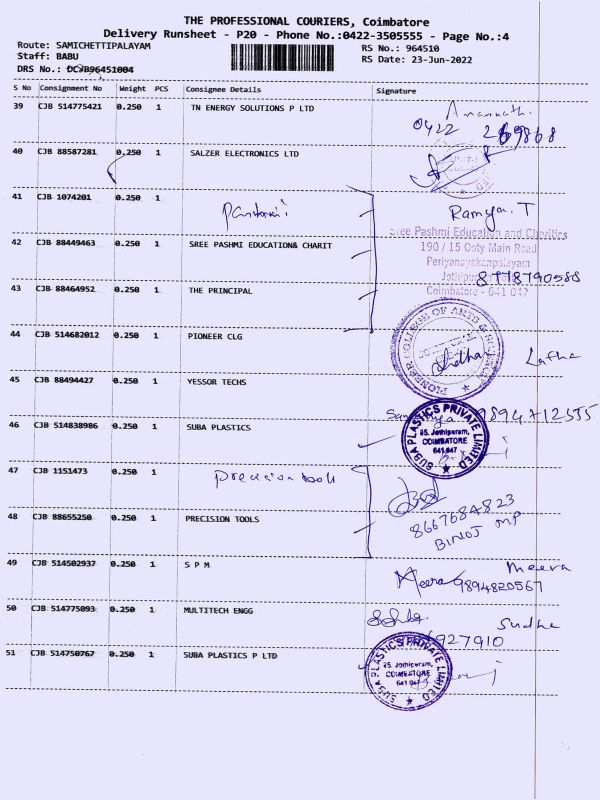 THE PROFESSIONAL COURIERS, Coimbatore
Delivery Runsheet - P20 - Phone No.:0422-3505555 - Page No.:4
Route: SAMICHETTIPALAYAM
RS No.: 964510
Staff: BABU
RS Date: 23-Jun-2022
DRS No.: DCJB96451004
S No Consignment No Weight PCS Consignee Details Signature
39 CJB 514775421 0.250 1 TN ENERGY SOLUTIONS P LTD
0422
40 CJB 88587281 0.250 1 SALZER ELECTRONICS LTD
41 CJB 1074201 0.250 1 Ramya.T
Sree Pashmi Education and Charities
42 CJB 88449463 0.250 1 SREE PASHMI EDUCATION& CHARIT
190 / 15 Ooty Main Road
Periyanayakanpalayam
43 CJB 88464952 0.250 1 THE PRINCIPAL
8778790588
Coimbatore - 641 047
44 CJB 514682012 0.250 1 PIONEER CLG
PIONEER COLLEGE OF ARTS &
Latha
45 CJB 88494427 0.250 1 YESSOR TECHS
9894712555
46 CJB 514838986 0.250 1 SUBA PLASTICS
SUBA PLASTICS PRIVATE LIMITED
85, Jothipuram,
COIMBATORE
641 047
47 CJB 1151473 0.250 1 precision tools
48 CJB 88655250 0.250 1 PRECISION TOOLS
8667684823
BINOJ MP
49 CJB 514502937 0.250 1 S P M
Meera
Meera 9894820567
50 CJB 514775093 0.250 1 MULTITECH ENGG
Sudha
927910
51 CJB 514750767 0.250 1 SUBA PLASTICS P LTD
SUBA PLASTICS PRIVATE LIMITED
85, Jothipuram,
COIMBATORE
641 047